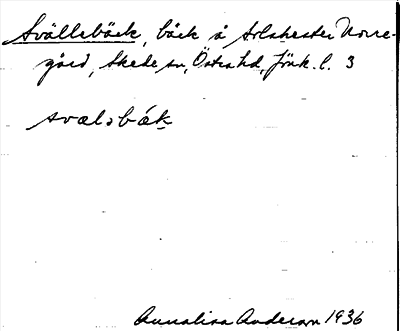 Svällebäck, bäck å Solahester Norre-
gård, Skede sn, Östra hd, Jönk. l. 3
svæləbǽk
Annalisa Anderson 1936